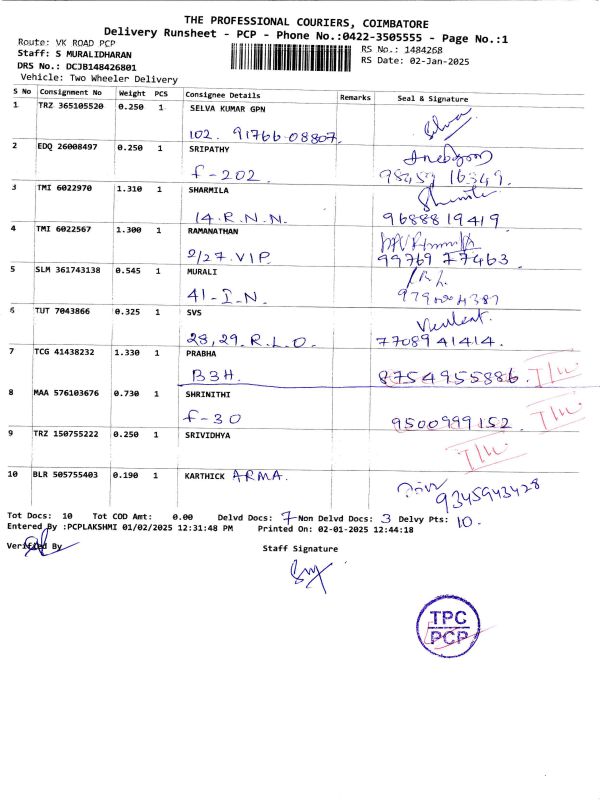 THE PROFESSIONAL COURIERS, COIMBATORE
Delivery Runsheet - PCP - Phone No.:0422-3505555 - Page No.:1
Route: VK ROAD PCP
RS No.: 1484268
Staff: S MURALIDHARAN
RS Date: 02-Jan-2025
DRS No.: DCJB148426801
Vehicle: Two Wheeler Delivery
S No Consignment No Weight PCS Consignee Details Remarks Seal & Signature
1 TRZ 365105520 0.250 1 SELVA KUMAR GPN Selva
102. 91766-08807.
2 EDQ 26008497 0.250 1 SRIPATHY
f-202. 98459 16349.
3 TMI 6022970 1.310 1 SHARMILA
14.R.N.N. 9688819419.
4 TMI 6022567 1.300 1 RAMANATHAN
2/27.VIP. 99769 77463.
5 SLM 361743138 0.545 1 MURALI
41-I-N.
6 TUT 7043866 0.325 1 SVS
28,29.R.L.O. 7708941414.
7 TCG 41438232 1.330 1 PRABHA
B3H. 8754955886.
8 MAA 576103676 0.730 1 SHRINITHI
f-30 9500999152.
9 TRZ 150755222 0.250 1 SRIVIDHYA
10 BLR 505755403 0.190 1 KARTHICK ARMA.
9345943428
Tot Docs: 10 Tot COD Amt: 0.00 Delvd Docs: 7 Non Delvd Docs: 3 Delvy Pts: 10.
Entered By :PCPLAKSHMI 01/02/2025 12:31:48 PM Printed On: 02-01-2025 12:44:18
Verified By Staff Signature
TPC
PCP